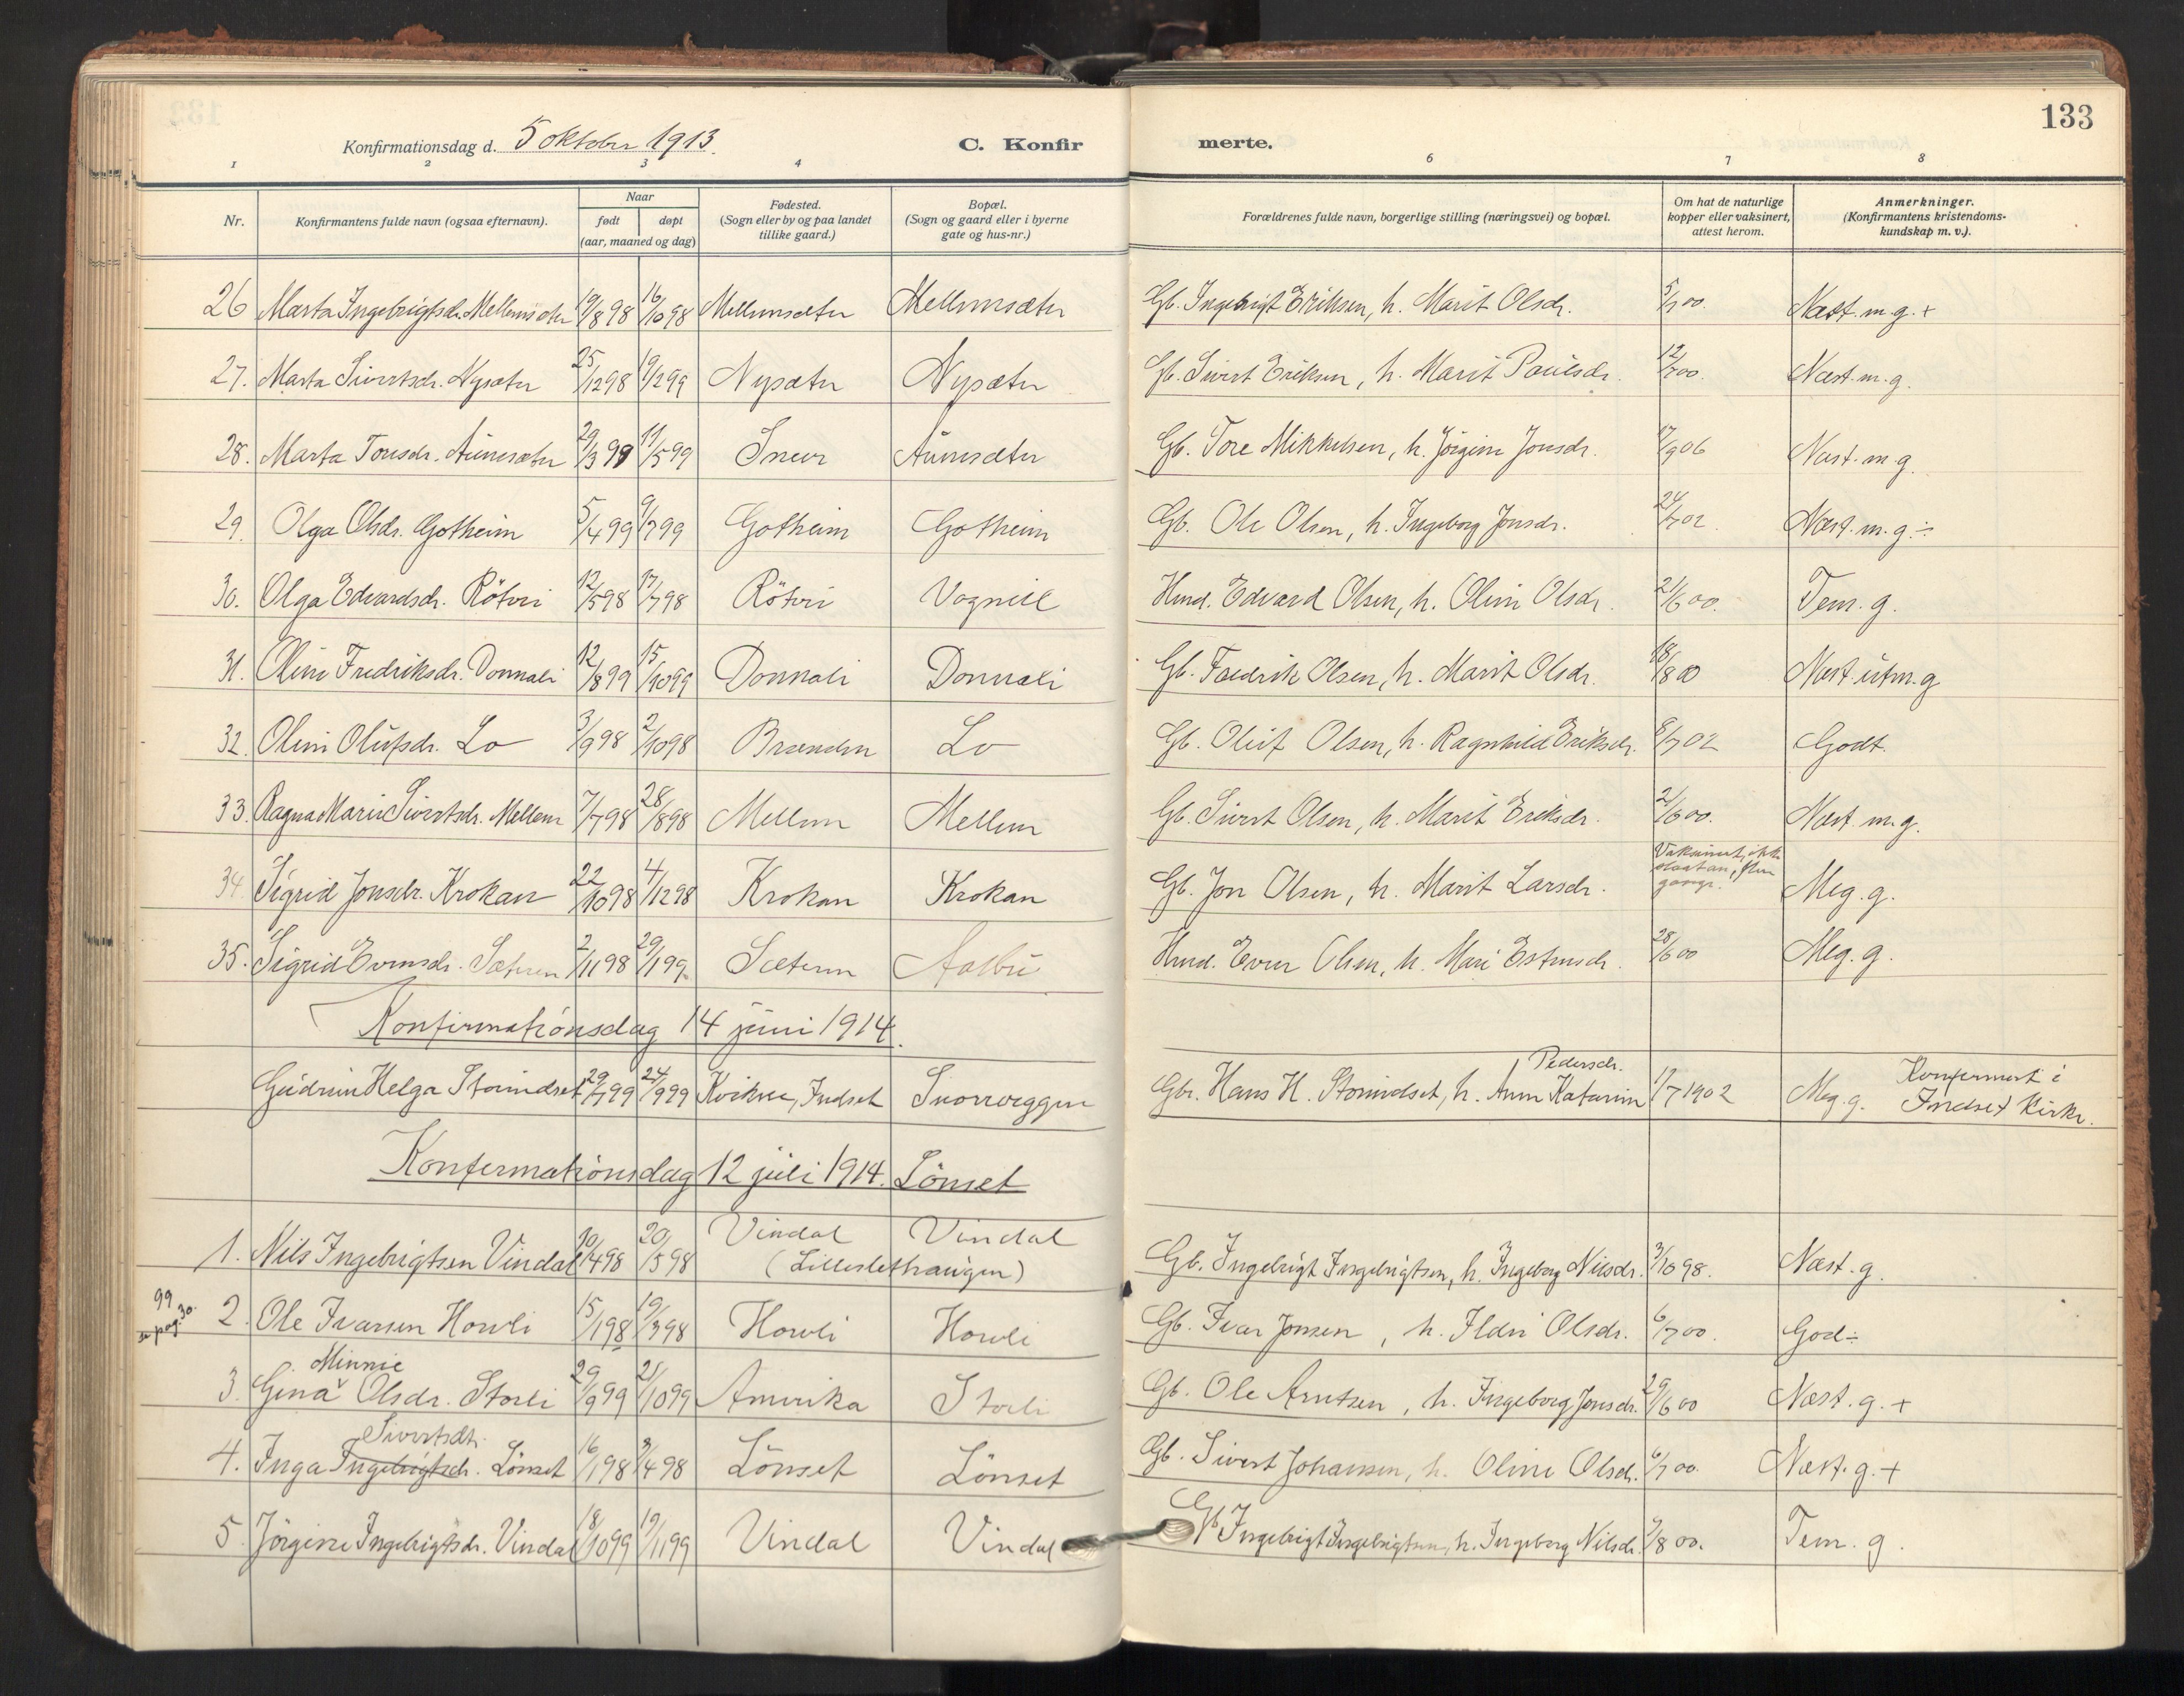 133
Konfirmationsdag d. 5 oktober 1913.
C. Konfir
merte.
1 2 3 4 6 7 8
Nr.
Konfirmantens fulde navn (ogsaa efternavn).
Naar
født døpt
(aar, maaned og dag)
Fødested.
(Sogn eller by og paa landet
tillike gaard.)
Bopæl.
(Sogn og gaard eller i byerne
gate og hus-nr.)
Forældrenes fulde navn, borgerlige stilling (næringsvei) og bopæl.
Om hat de naturlige
kopper eller vaksinert,
attest herom.
Anmerkninger.
(Konfirmantens kristendoms-
kundskap m. v.).
26 Marta Ingebrigtsdr. Mellemsæter 19/8 98 16/10 98 Mellemsæter Mellemsæter Gb. Ingebrigt Eriksen, h. Marit Olsdr. 5/7 00. Næst. m. g. +
27. Marta Sivertsdr. Nysæter 25/12 98 19/2 99 Nysæter Nysæter Gb. Sivert Eriksen, h. Marit Paulsdr. 12/7 00. Næst. m. g.
28. Marta Toresdr. Aunesæter 29/3 99 11/5 99 Aunesæter Gb. Tore Mikkelsen, h. Jörgine Jonsdr. 17/9 06 Næst. m. g.
29. Olga Olsdr. Gotheim 5/4 99 9/7 99 Gotheim Gotheim Gb. Ole Olsen, h. Ingeborg Jonsdr. 24/7 02. Næst. m. g. ÷
30. Olga Edvardsdr. Rötvei 12/5 98 17/7 98 Rötvei Vognill Hmd. Edvard Olsen, h. Oline Olsdr. 21/6 00. Tem. g.
31. Oline Fredriksdr. Donnali 12/8 99 15/10 99 Donnali Donnali Gb. Fredrik Olsen, h. Marit Olsdr. 18/8 00 Næst. utm. g
32. Oline Olufsdr. Lo 3/9 98 2/10 98 Brænden Lo Gb. Oluf Olsen, h. Ragnhild Eriksdr. 8/7 02 Godt.
33. Ragna Marie Sivertsdr. Mellem 7/7 98 28/8 98 Mellem Mellem Gb. Sivert Olsen, h. Marit Eriksdr. 21/6 00. Næst. m. g.
34. Sigrid Jonsdr. Krokan 22/10 98 4/12 98 Krokan Krokan Gb. Jon Olsen, h. Marit Larsdr. Vaksinert, ikke slaat an, flere gange. Meg. g.
35. Sigrid Evensdr. Sæteren 2/11 98 29/1 99. Sæteren Aalbu Hmd. Even Olsen, h. Mari Estensdr. 28/6 00 Meg. g.
Konfirmationsdag 14 juni 1914.
Gudrun Helga Storindset 29/7 99 24/9 99 Kvikne, Indset Snoeveggen Gbr. Hans H. Storindset, h. Anne Katarine Pedersdr. 17/7 1902 Meg. g. Konfermert i Indset Kirke.
Konfermationsdag 12 juli 1914. Lönset
1. Nils Ingebrigtsen Vindal 10/4 98 20/5 98 Vindal Vindal
(Lillesletthaugen)
Gb. Ingebrigt Ingebrigtsen, h. Ingeborg Nilsdr. 3/10 98. Næst. g.
99
se pag. 30.
2. Ole Ivarsen Hovli 15/1 98 19/3 98 Hovli Hovli Gb. Ivar Jonsen, h. Ildri Olsdr. 6/7 00. God ÷
3. Gina Minnie Olsdr. Storli 29/9 99 21/10 99 Amerika Storli Gb. Ole Arntsen, h. Ingeborg Jonsdr. 29/6 00 Næst. g. +
4. Inga Ingebrigtsdr. Sivertsdr. Lönset 16/1 98 3/4 98 Lönset Lönset Gb. Sivert Johansen, h. Oline Olsdr. 6/7 00. Næst. g. +
5. Jörgine Ingebrigtsdr. Vindal 18/10 99 19/11 99 Vindal Vindal Gb. Ingebrigt Ingebrigtsen, h. Ingeborg Nilsdr. 9/8 00. Tem. g.